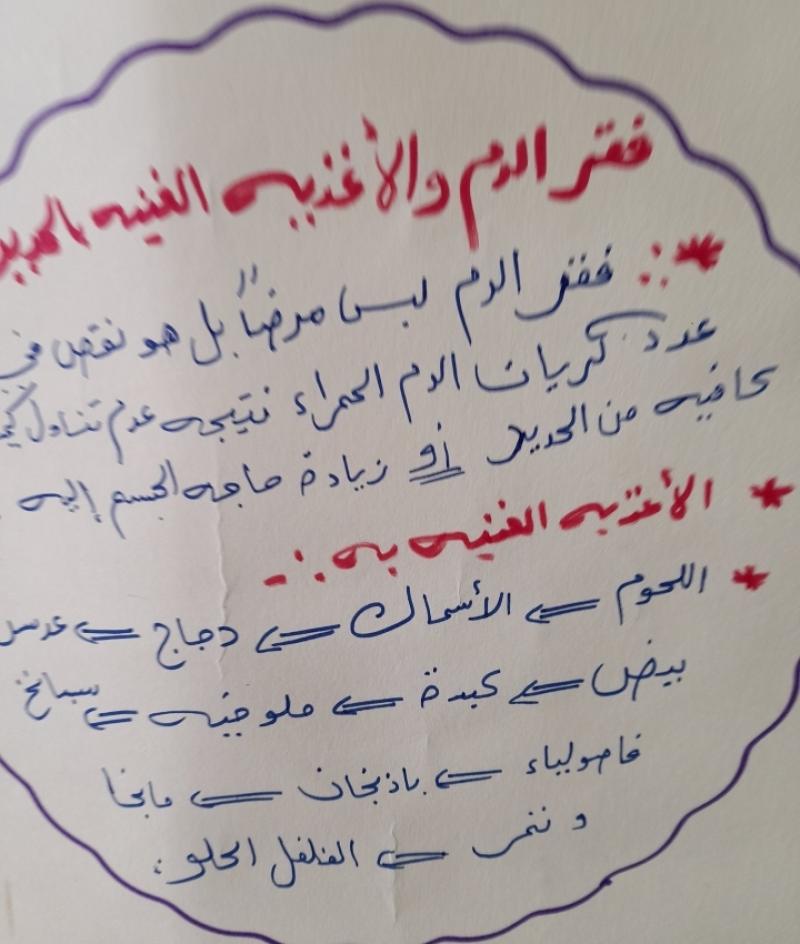 فقر الدم والأغذيه الغنيه بالحديد
* :. فقر الدم ليس مرضاً بل هو نقص في
عدد كريات الدم الحمراء نتيجه عدم تناول
كافيه من الحديد أو زيادة حاجه الجسم إليه
* الأغذيه الغنيه به :-
* اللحوم ⇐ الأسماك ⇐ دجاج ⇐ عدس
بيض ⇐ كبدة ⇐ ملوخيه ⇐ سبانخ
فاصولياء ⇐ باذنجان ⇐ مانجا
و تمر ⇐ الفلفل الحلو.